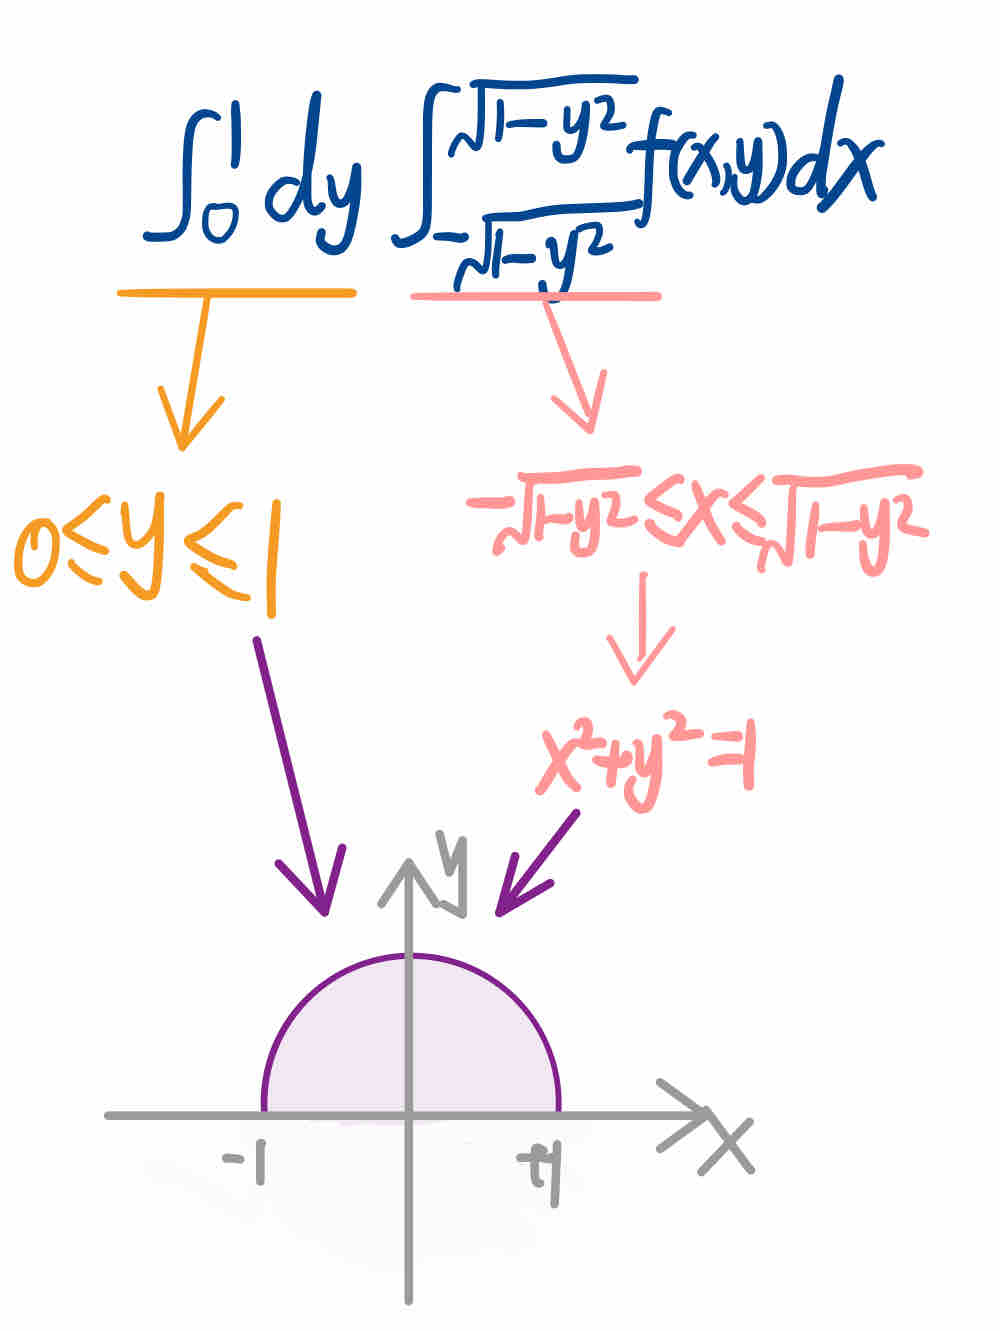 ∫₀¹ dy ∫_{-√(1-y²)}^{√(1-y²)} f(x,y)dx
0≤y≤1
-√(1-y²) ≤x≤ √(1-y²)
x²+y²=1
y
x
-1
+1